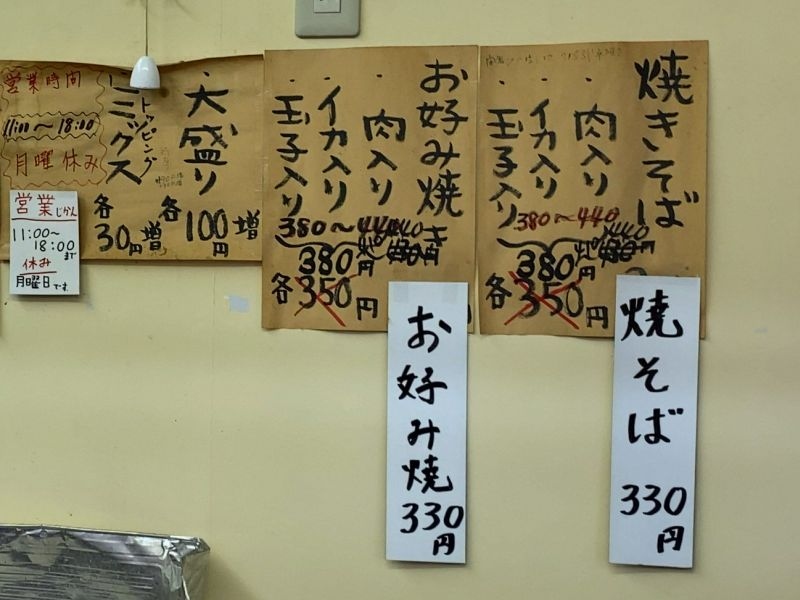 焼きそば
・肉入り
440
・イカ入り
・玉子入り
380～440
380円
各350円
焼そば
330円
お好み焼き
・肉入り
440
・イカ入り
・玉子入り
380～440
380円
各350円
お好み焼
330円
・大盛り
各100円増
・トッピング
ミックス
各30円増
営業時間
11:00～18:00
月曜休み
営業じかん
11:00～
18:00まで
休み
月曜日です